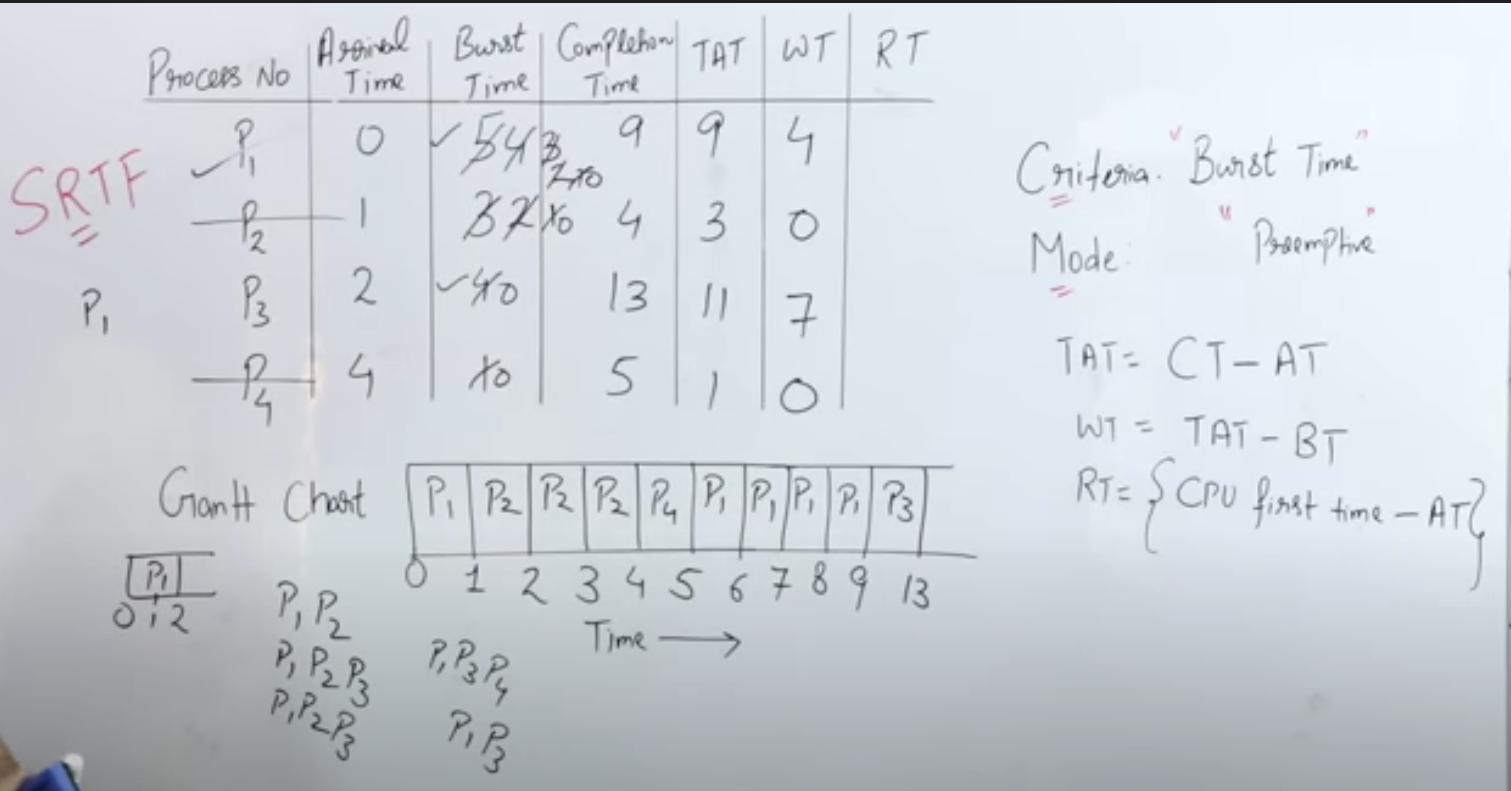 Process No Arrival Time Burst Time Completion Time TAT WT RT
P1 0 5 4 3 2 1 0 9 9 4
P2 1 3 2 1 0 4 3 0
P3 2 4 0 13 11 7
P4 4 1 0 5 1 0
SRTF
P1
Criteria: "Burst Time"
Mode: "Preemptive"
TAT = CT - AT
WT = TAT - BT
RT = {CPU first time - AT}
Gantt Chart
P1 P2 P2 P2 P4 P1 P1 P1 P1 P3
0 1 2 3 4 5 6 7 8 9 13
Time →
P1
0 1 2
P1 P2
P1 P2 P3
P1 P2 P3
P1 P3 P4
P1 P3